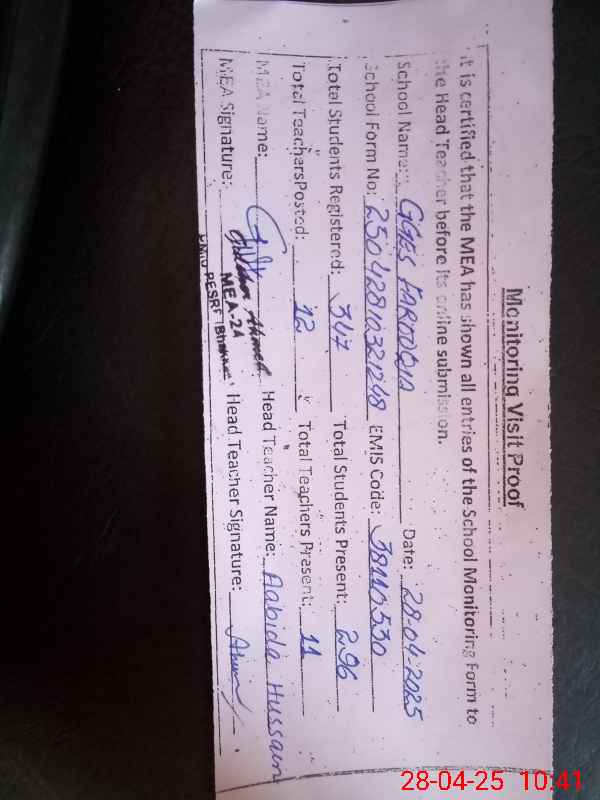 Monitoring Visit Proof
It is certified that the MEA has shown all entries of the School Monitoring Form to
the Head Teacher before its online submission.
School Name: GGES FAROOQIA Date: 28-04-2025
School Form No: 25042810321248 EMIS Code: 38110530
Total Students Registered: 347 Total Students Present: 296
Total TeachersPosted: 12 Total Teachers Present: 11
MEA Name: Head Teacher Name: Aabida Hussain
MEA Signature: Head Teacher Signature:
MEA-24
28-04-25 10:41